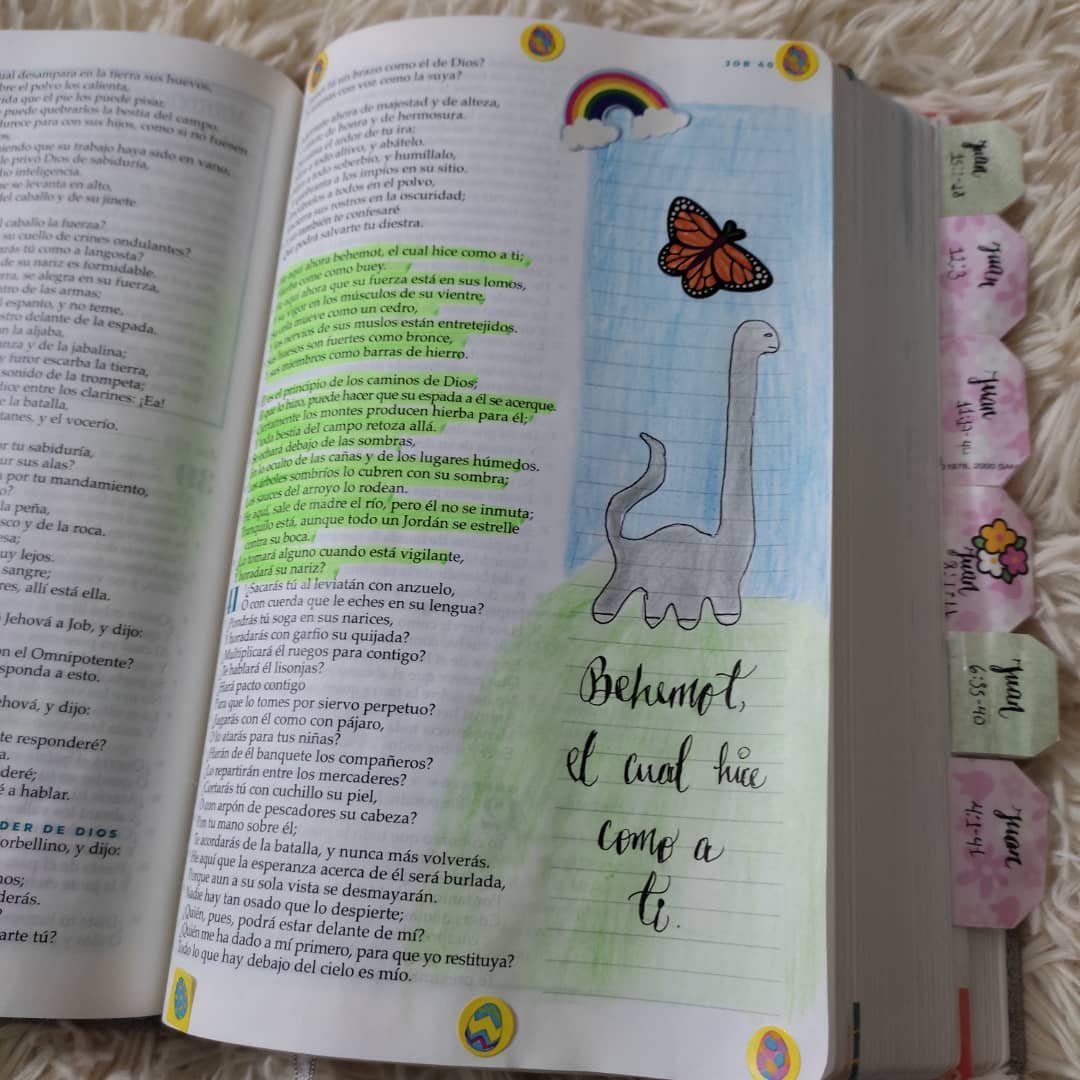 ual desampara en la tierra sus huevos,
bre el polvo los calienta,
ida que el pie los puede pisar,
puede quebrarlos la bestia del campo.
durece para con sus hijos, como si no fuesen
iendo que su trabajo haya sido en vano;
le privó Dios de sabiduría,
dio inteligencia.
e se levanta en alto,
del caballo y de su jinete.
l caballo la fuerza?
su cuello de crines ondulantes?
arás tú como a langosta?
de su nariz es formidable.
rra, se alegra en su fuerza,
tro de las armas;
espanto, y no teme,
stro delante de la espada.
n la aljaba,
nza y de la jabalina;
y furor escarba la tierra,
sonido de la trompeta;
dice entre los clarines: ¡Ea!
e la batalla,
tanes, y el vocerío.
r tu sabiduría,
ur sus alas?
a por tu mandamiento,
o?
la peña,
sco y de la roca.
esa;
uy lejos.
sangre;
res, allí está ella.
Jehová a Job, y dijo:
on el Omnipotente?
sponda a esto.
ehová, y dijo:
te responderé?
a.
deré;
é a hablar.
DER DE DIOS
orbellino, y dijo:
nos;
derás.
?
arte tú?
JOB 40
tú un brazo como el de Dios?
con voz como la suya?
ahora de majestad y de alteza,
de honra y de hermosura.
el ardor de tu ira;
a todo altivo, y abátelo.
a todo soberbio, y humíllalo,
a los impíos en su sitio.
a todos en el polvo,
sus rostros en la oscuridad;
también te confesaré
podrá salvarte tu diestra.
aquí ahora behemot, el cual hice como a ti;
come como buey.
aquí ahora que su fuerza está en sus lomos,
su vigor en los músculos de su vientre.
cola mueve como un cedro,
los nervios de sus muslos están entretejidos.
huesos son fuertes como bronce,
sus miembros como barras de hierro.
es el principio de los caminos de Dios;
que lo hizo, puede hacer que su espada a él se acerque.
Ciertamente los montes producen hierba para él;
toda bestia del campo retoza allá.
echará debajo de las sombras,
En lo oculto de las cañas y de los lugares húmedos.
árboles sombríos lo cubren con su sombra;
sauces del arroyo lo rodean.
He aquí, sale de madre el río, pero él no se inmuta;
Tranquilo está, aunque todo un Jordán se estrelle
contra su boca.
Lo tomará alguno cuando está vigilante,
horadará su nariz?
¿Sacarás tú al leviatán con anzuelo,
O con cuerda que le eches en su lengua?
Pondrás tú soga en sus narices,
Y horadarás con garfio su quijada?
Multiplicará él ruegos para contigo?
Te hablará él lisonjas?
Hará pacto contigo
Para que lo tomes por siervo perpetuo?
Jugarás con él como con pájaro,
O lo atarás para tus niñas?
Harán de él banquete los compañeros?
Lo repartirán entre los mercaderes?
Cortarás tú con cuchillo su piel,
O con arpón de pescadores su cabeza?
Pon tu mano sobre él;
Te acordarás de la batalla, y nunca más volverás.
He aquí que la esperanza acerca de él será burlada,
Porque aun a su sola vista se desmayarán.
Nadie hay tan osado que lo despierte;
¿Quién, pues, podrá estar delante de mí?
¿Quién me ha dado a mí primero, para que yo restituya?
Todo lo que hay debajo del cielo es mío.
Behemot,
el cual hice
como a
ti.
Juan
15:1-28
Juan
12:3
Juan
11:17-40
Juan
Juan
6:35-40
Juan
4:1-41